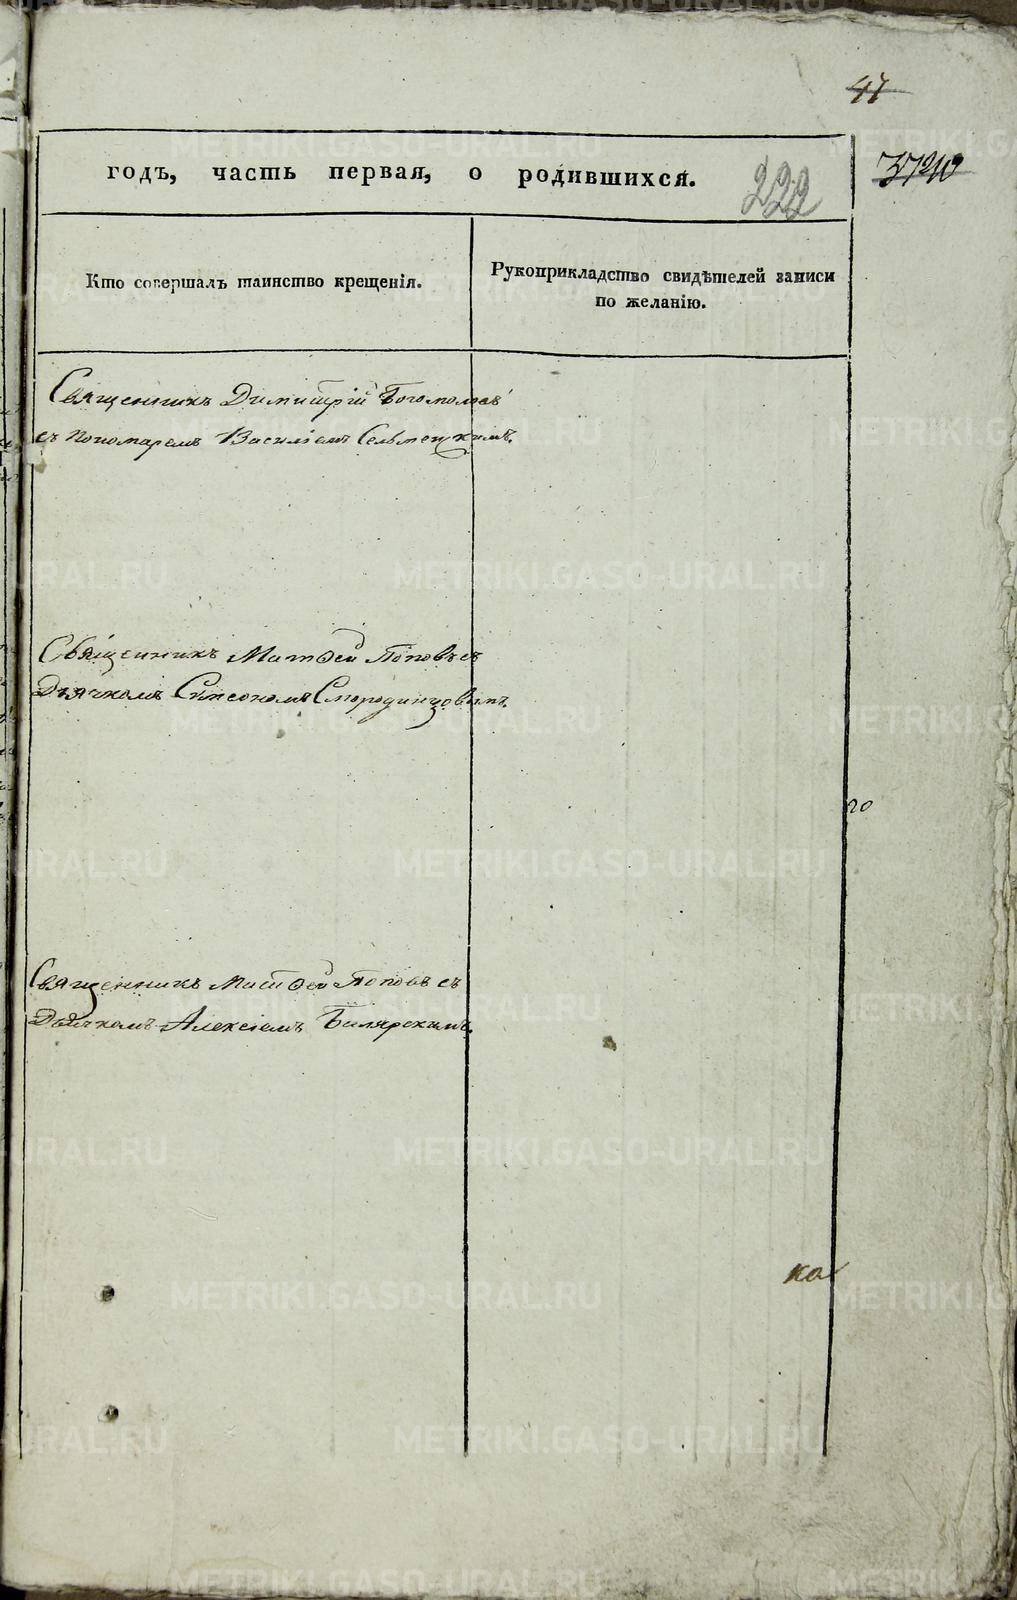 47
годъ, часть первая, о родившихся.
222
Кто совершалъ таинство крещенія.
Рукоприкладство свидѣтелей записи
по желанію.
Священникъ Димитрій Богомоловъ
съ пономаремъ Василіемъ Сельменскимъ.
Священникъ Матѳей Поповъ съ
Дьячкомъ Симеономъ Смородинцовымъ.
20
Священникъ Матѳей Поповъ съ
Дьячкомъ Алексіемъ Билярскимъ.
ка
METRIKI.GASO-URAL.RU